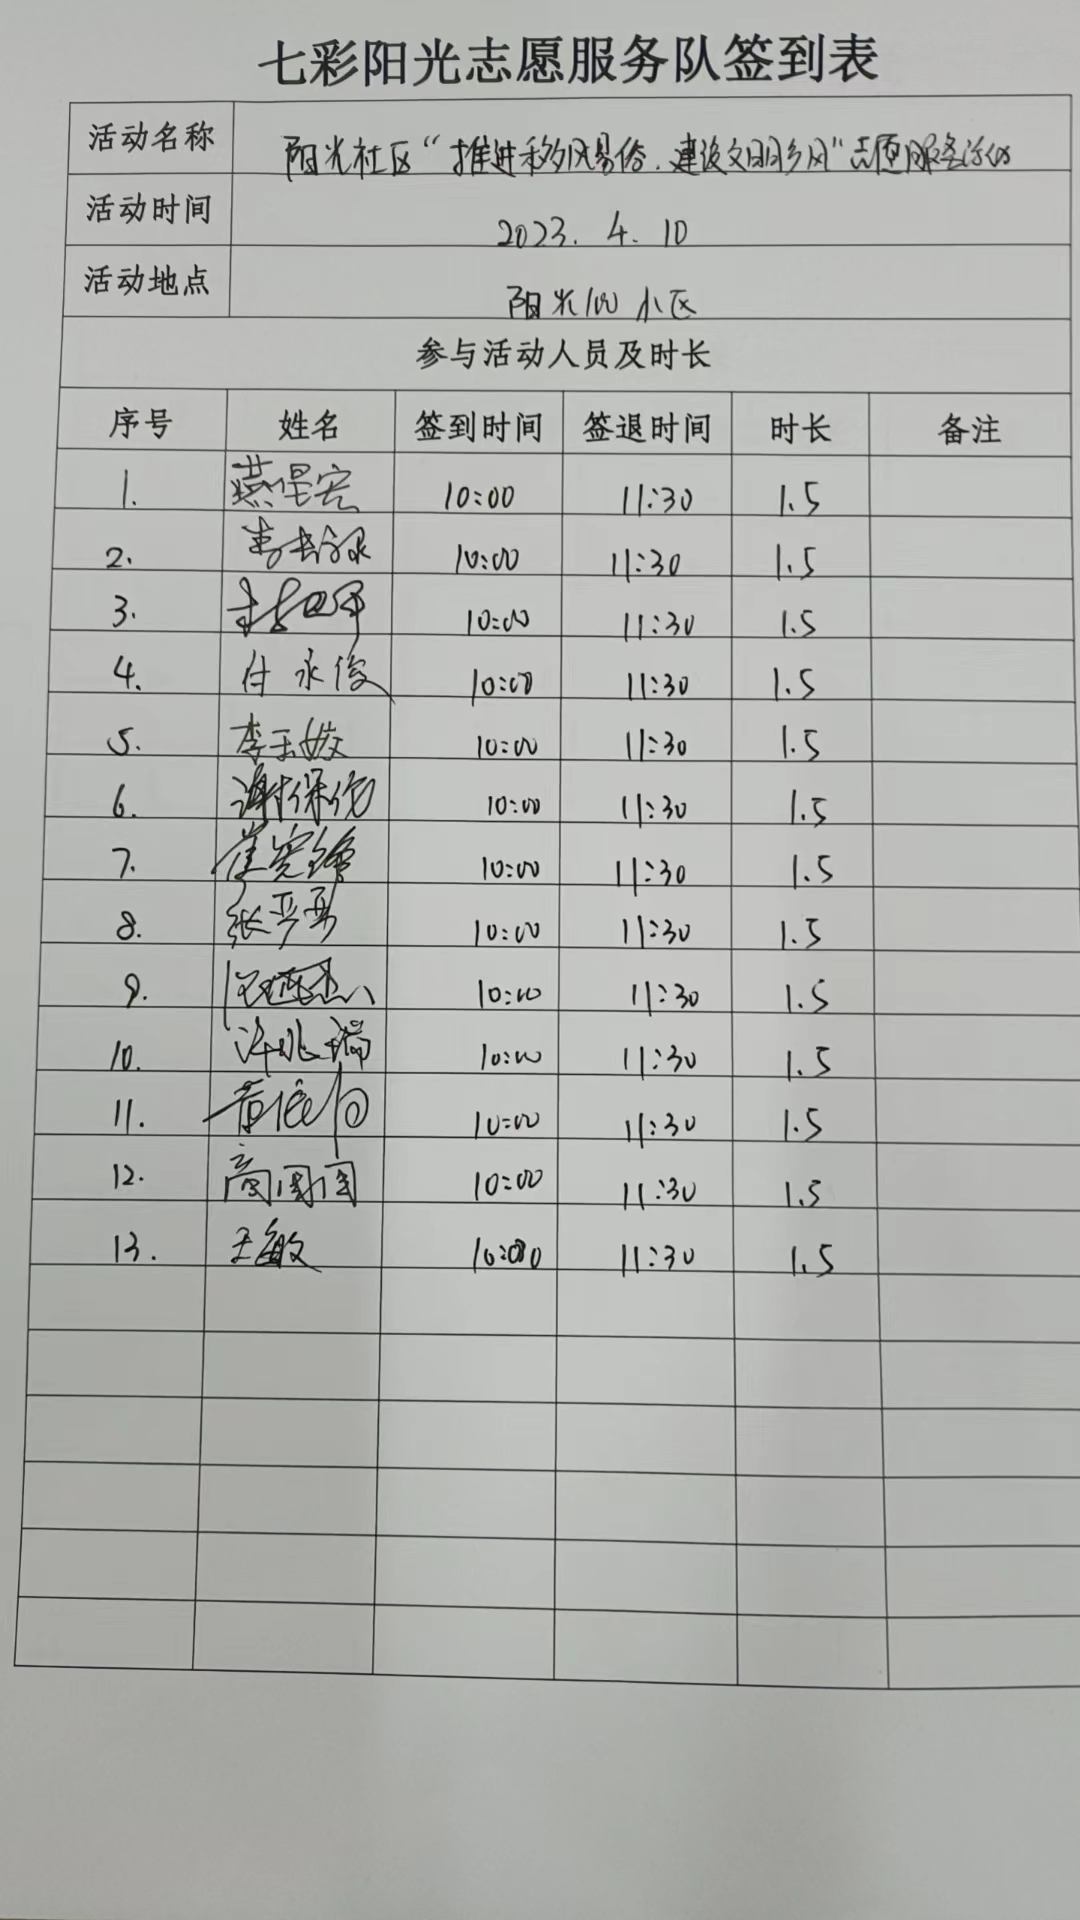 七彩阳光志愿服务队签到表
活动名称 阳光社区“推进移风易俗.建设文明乡风”志愿服务活动
活动时间 2023. 4. 10
活动地点 阳光100小区
参与活动人员及时长
序号 姓名 签到时间 签退时间 时长 备注
1. 10:00 11:30 1.5
2. 10:00 11:30 1.5
3. 10:00 11:30 1.5
4. 付永俊 10:00 11:30 1.5
5. 李玉 10:00 11:30 1.5
6. 谢保 10:00 11:30 1.5
7. 崔 10:00 11:30 1.5
8. 张 10:00 11:30 1.5
9. 10:00 11:30 1.5
10. 许兆瑞 10:00 11:30 1.5
11. 10:00 11:30 1.5
12. 商 10:00 11:30 1.5
13. 王敏 10:00 11:30 1.5